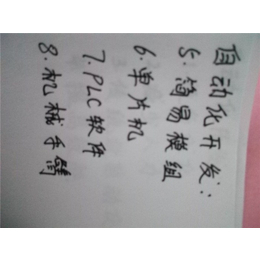 自动化开发:
5.简易模组
6.单片机
7.PLC软件
8.机械手臂